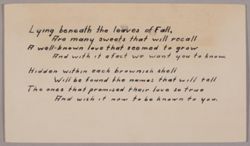 Lying beneath the leaves of Fall,
Are many sweets that will recall
A well-known love that seemed to grow
And with it a fact we want you to know.
Hidden within each brownish shell
Will be found the names that will tell
The ones that promised their love so true
And wish it now to be known to you.